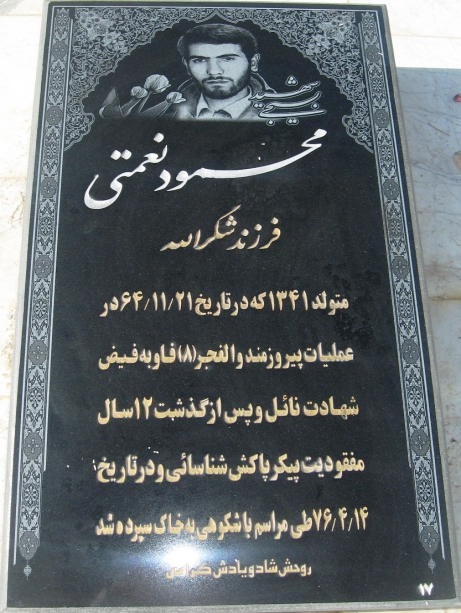 شهید
بسیجی
محمود نعمتی
فرزند شکرالله
متولد ۱۳۴۱ که در تاریخ ۶۴/۱۱/۲۱ در
عملیات پیروزمند والفجر (۸) فاو به فیض
شهادت نائل و پس از گذشت ۱۲ سال
مفقودیت پیکر پاکش شناسائی و در تاریخ
۷۶/۴/۱۴ طی مراسم باشکوهی به خاک سپرده شد
روحش شاد و یادش گرامی
۱۷